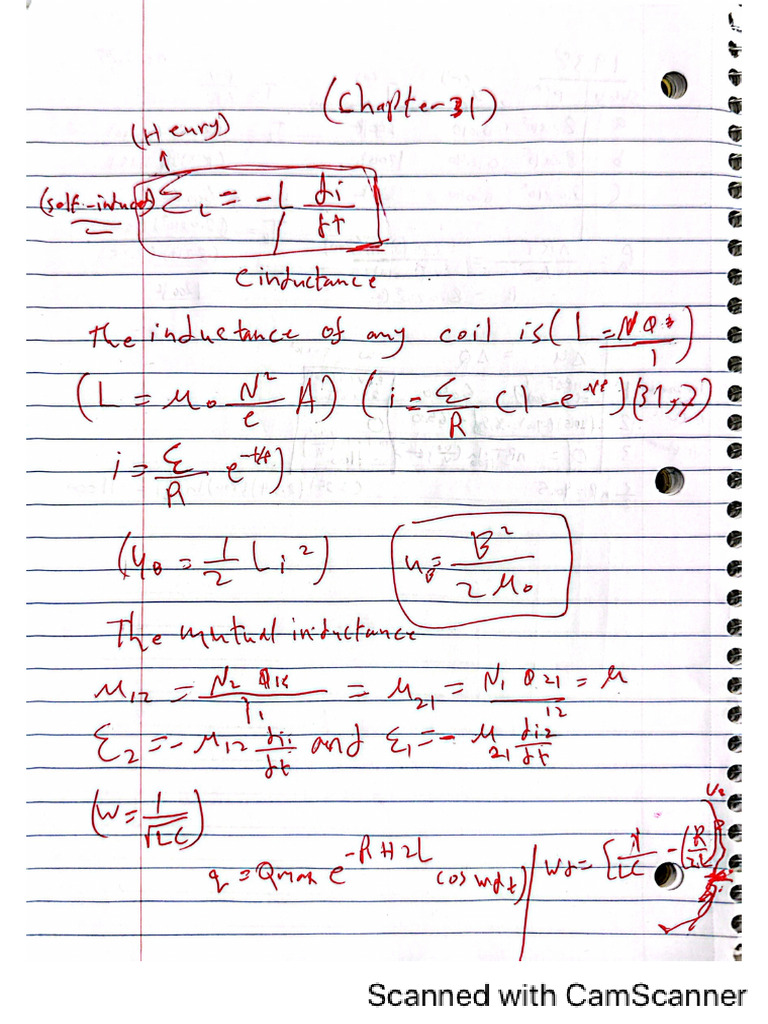 (Chapter 31)
(Henry)
↑
(self-induced) Ɛ_L = -L di/dt
(inductance
The inductance of any coil is (L = NΦB/i)
(L = μ₀ N²/ℓ A) (i = Ɛ/R (1 - e^-t/τ) (31,7)
i = Ɛ/R e^-t/τ)
(U_B = 1/2 L i²) u_B = B²/2μ₀
The mutual inductance
M₁₂ = N₂ Φ₁₂/I₁ = M₂₁ = N₁ Φ₂₁/I₂ = M
Ɛ₂ = - M₁₂ di₁/dt and Ɛ₁ = - M₂₁ di₂/dt
(ω = 1/√LC)
q = Qmax e^-Rt/2L cos ωd t) / ωd = [1/LC - (R/2L)²]^1/2
Scanned with CamScanner